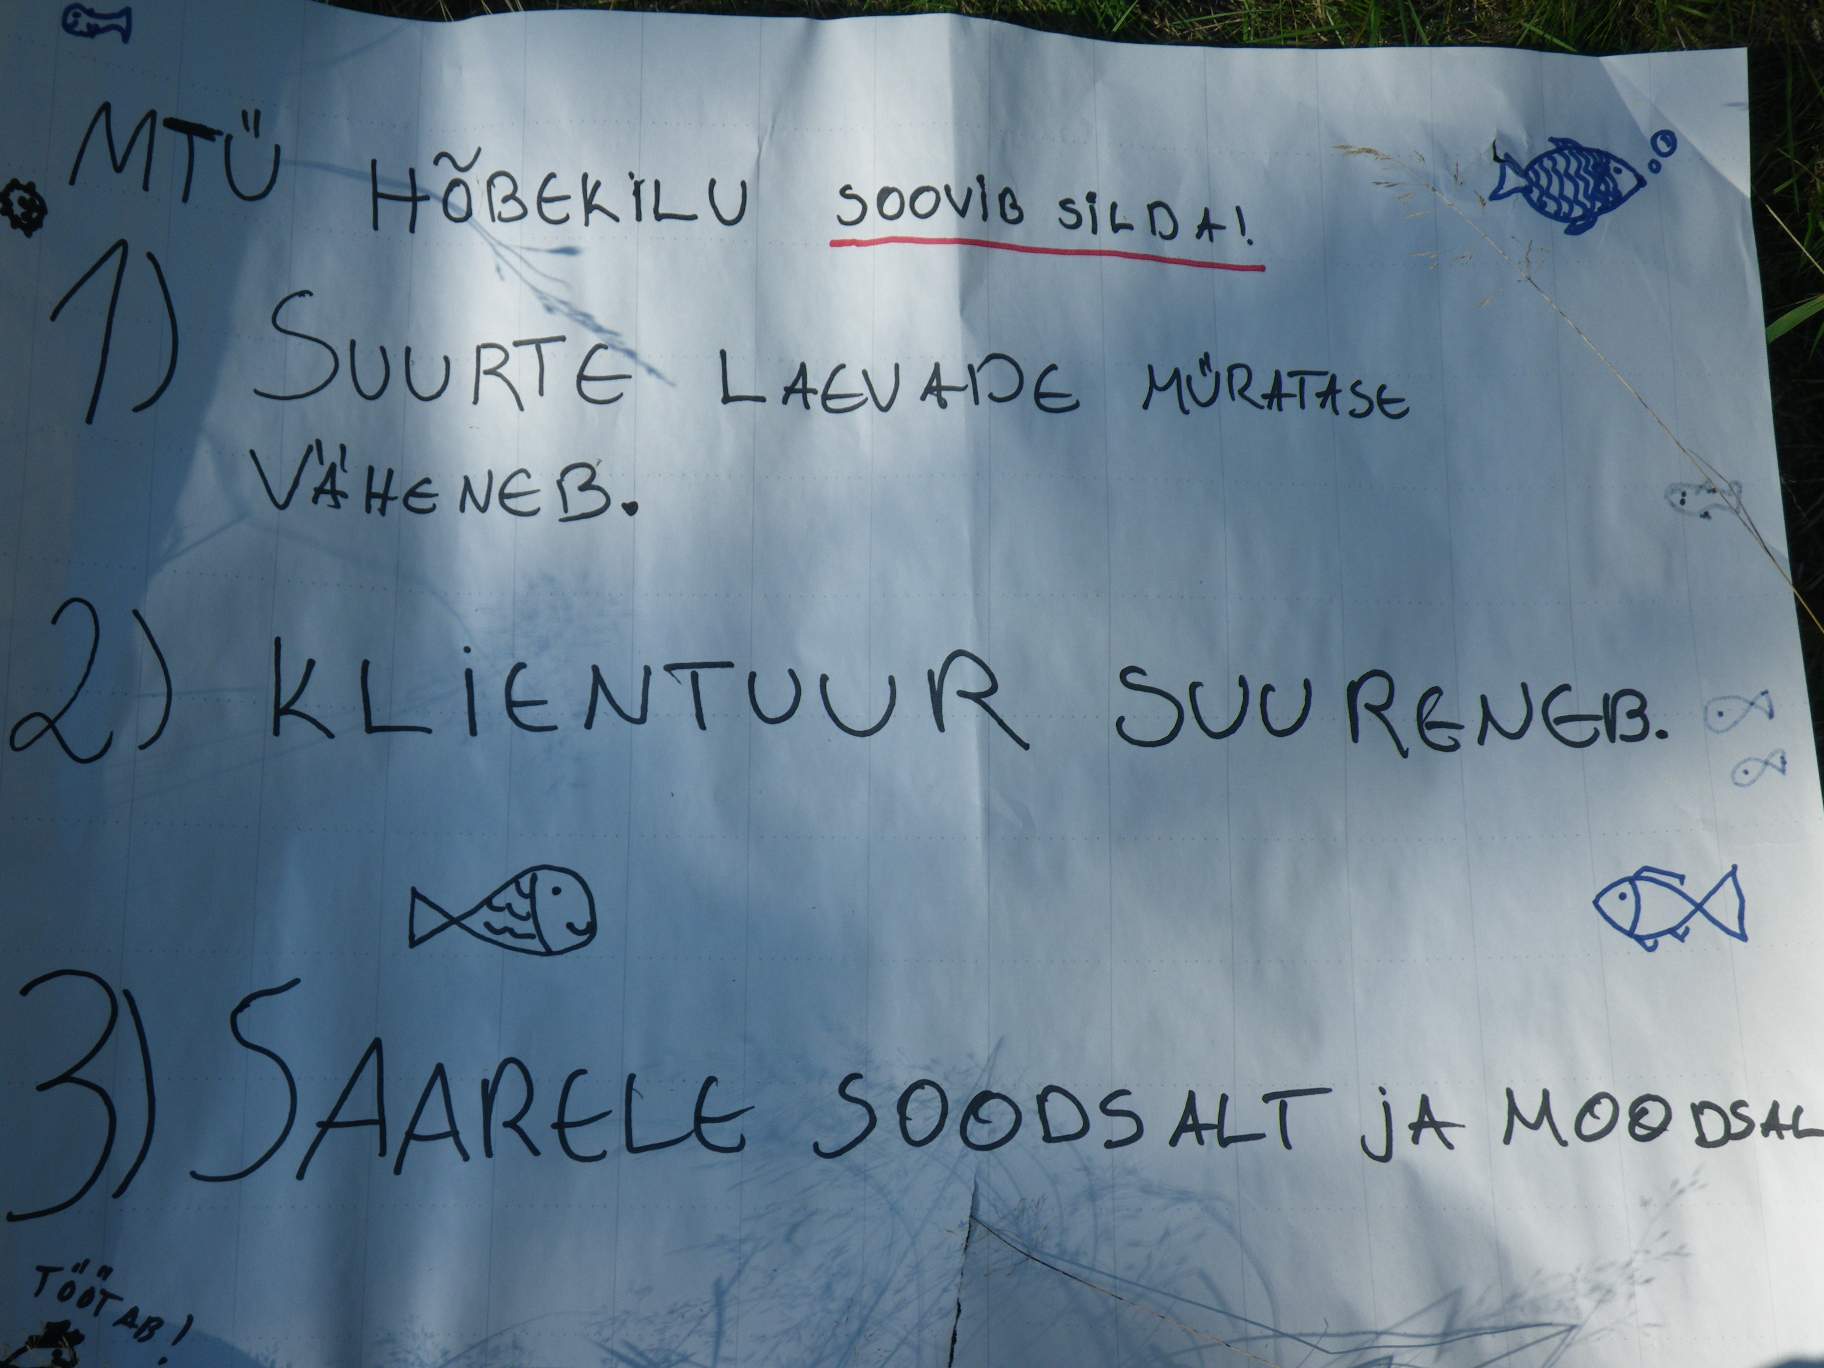 MTÜ HÕBEKILU SOOVIB SILDA!
1) SUURTE LAEVADE MÜRATASE
VÄHENEB.
2) KLIENTUUR SUURENEB.
3) SAARELE SOODSALT JA MOODSAL
TÖÖTAB!